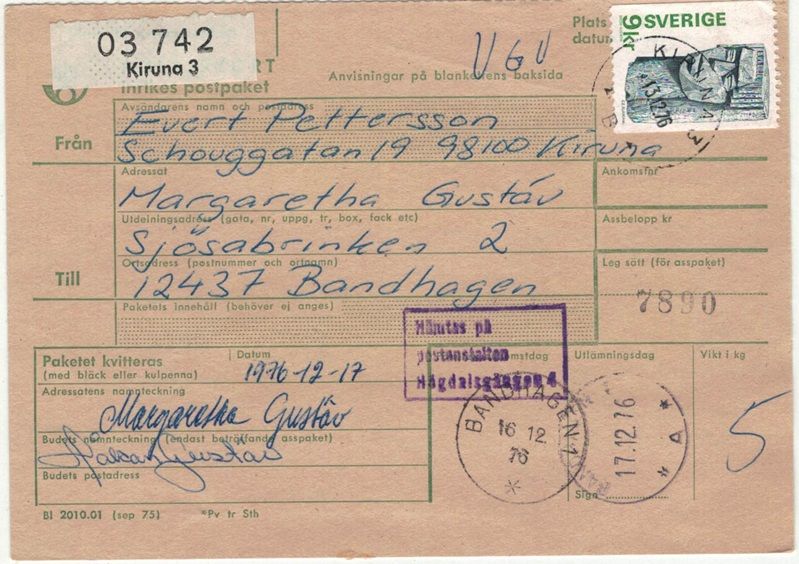 03 742
Kiruna 3
Inrikes postpaket
Anvisningar på blankettens baksida
VGV
Plats
datum
9 kr SVERIGE
KIRUNA 3
13.12.76
Avsändarens namn och postadress
Från
Evert Pettersson
Schouggatan 19 98100 Kiruna
Adressat
Ankomstnr
Margaretha Gustáv
Utdelningsadress (gata, nr, uppg, tr, box, fack etc)
Assbelopp kr
Sjösabrinken 2
Ortsadress (postnummer och ortnamn)
Leg sätt (för asspaket)
Till
12437 Bandhagen
7890
Paketets innehåll (behöver ej anges)
Hämtas på
postanstalten
Högdalsgången 4
Paketet kvitteras
(med bläck eller kulpenna)
Datum
1976-12-17
Utlämningsdag
Vikt i kg
Adressatens namnteckning
Margaretha Gustáv
BANDHAGEN 1
16 12
76
17.12.76
* A *
5
Budets namnteckning (endast beträffande asspaket)
Håkan Gustáv
Budets postadress
Sign
Bl 2010.01 (sep 75)
*Pv tr Sth